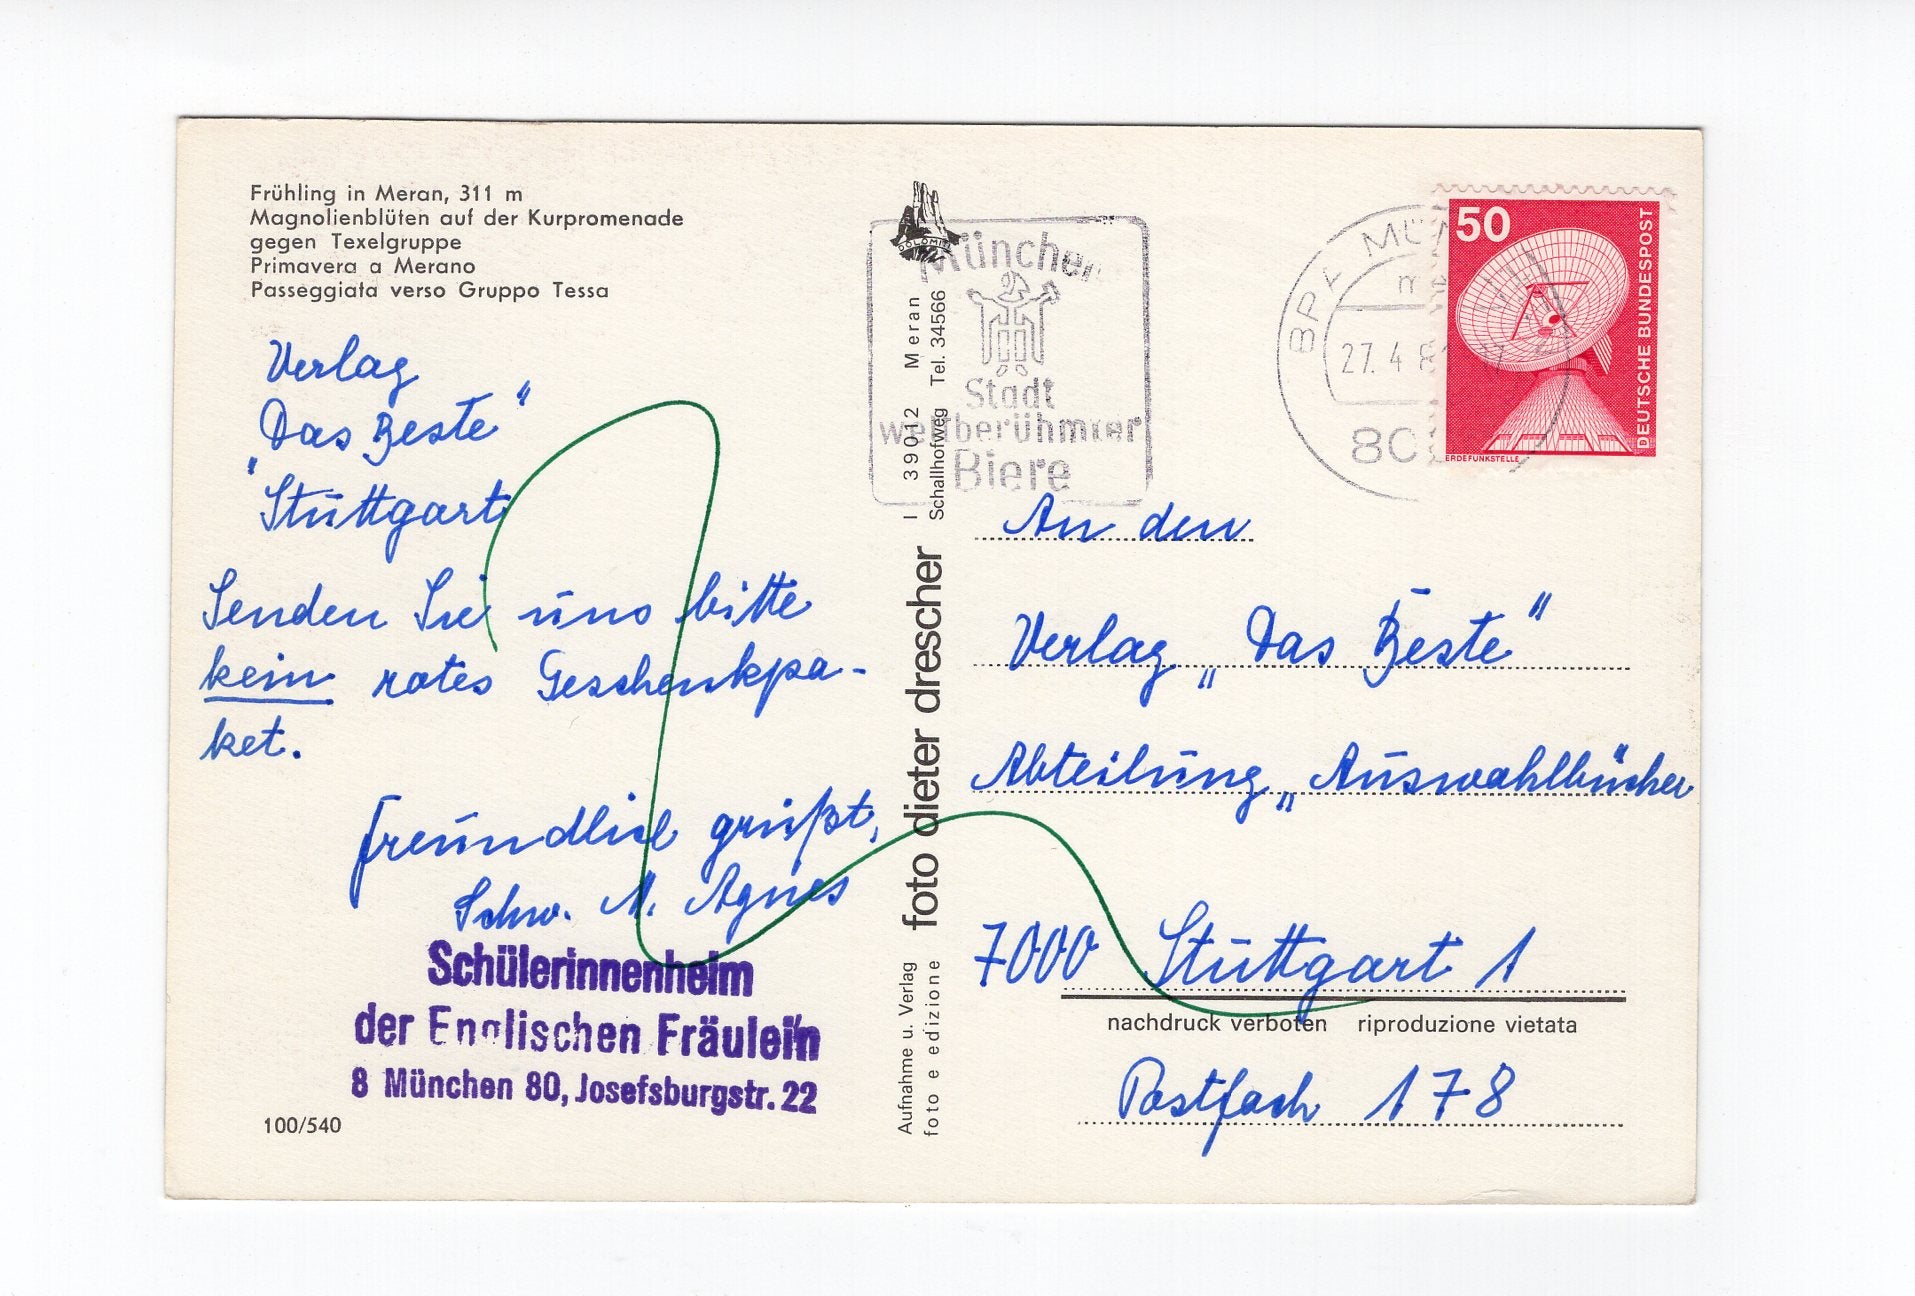 Frühling in Meran, 311 m
Magnolienblüten auf der Kurpromenade
gegen Texelgruppe
Primavera a Merano
Passeggiata verso Gruppo Tessa
Verlag
Das Beste"
"Stuttgart
Senden Sie uns bitte
kein rotes Geschenkpa-
ket.
Freundlich grüßt,
Schw. M. Agnes
Schülerinnenheim
der Englischen Fräulein
8 München 80, Josefsburgstr. 22
100/540
DOLOMITI
I 39012 Meran
Schallhofweg Tel. 34566
foto dieter drescher
Aufnahme u. Verlag
foto e edizione
München
Stadt
weltberühmter
Biere
BPA MÜN
27.4.8
80
50
DEUTSCHE BUNDESPOST
ERDEFUNKSTELLE
An den
Verlag „Das Beste"
Abteilung „Auswahlbücher
7000 Stuttgart 1
nachdruck verboten riproduzione vietata
Postfach 178